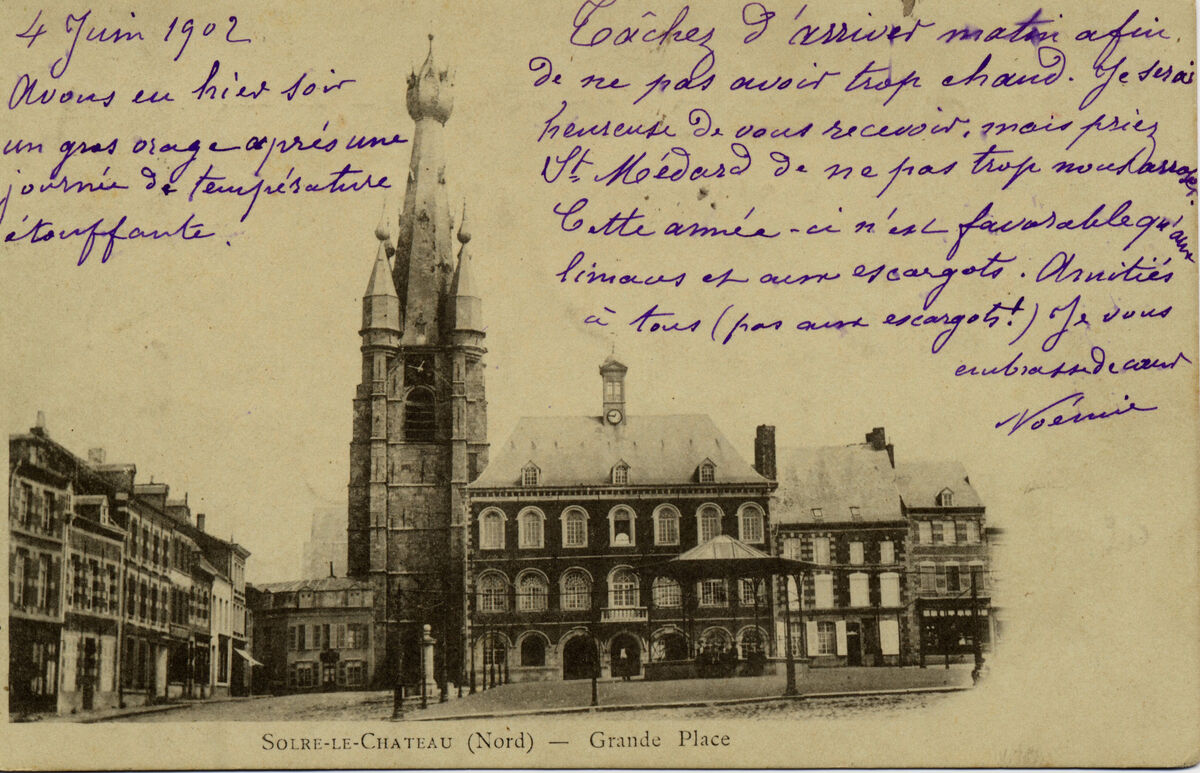 4 Juin 1902
Avons eu hier soir
un gros orage après une
journée de température
étouffante.
Tâchez d'arriver matin afin
de ne pas avoir trop chaud. Je serai
heureuse de vous recevoir, mais priez
St Médard de ne pas trop nous arroser.
Cette année-ci n'est favorable qu'aux
limaces et aux escargots. Amitiés
à tous (pas aux escargots!) Je vous
embrasse de cœur
Noémie
SOLRE-LE-CHATEAU (Nord) — Grande Place